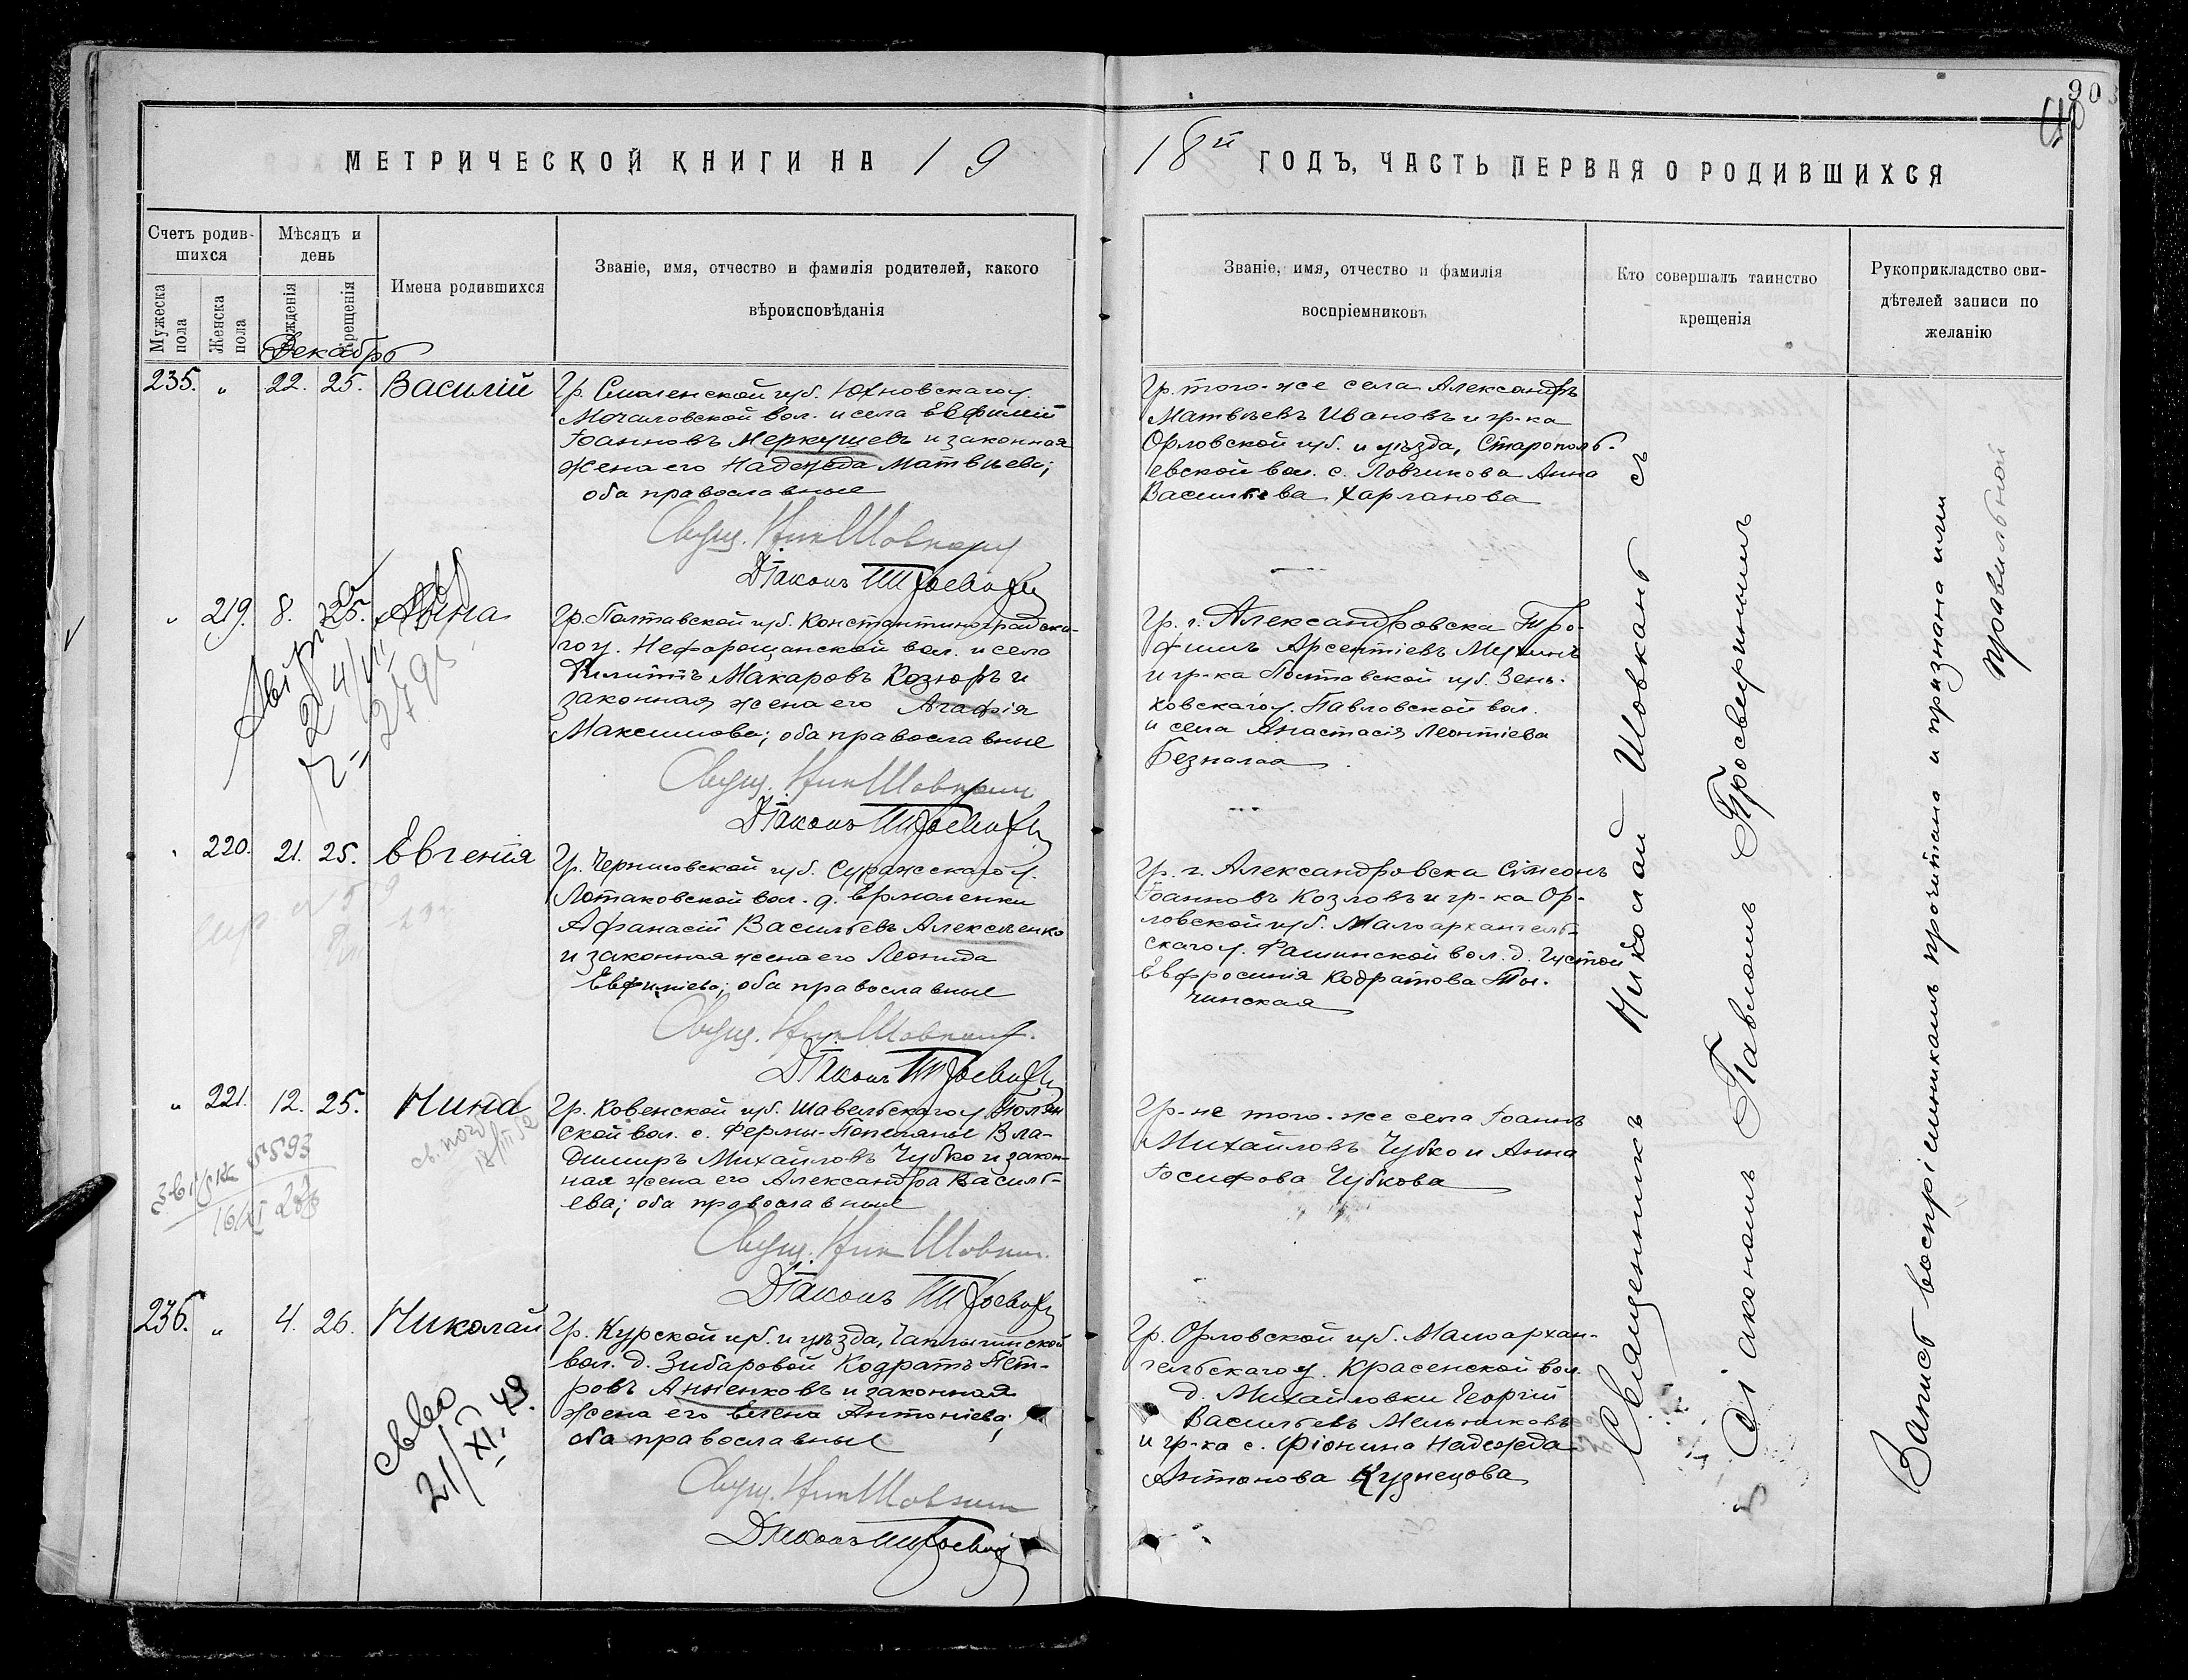 МЕТРИЧЕСКОЙ КНИГИ НА 19
18й ГОДЪ, ЧАСТЬ ПЕРВАЯ О РОДИВШИХСЯ
Счетъ родив-
шихся
Мужеска пола
Женска пола
Мѣсяцъ и
день
Рожденія
Крещенія
Имена родившихся
Званіе, имя, отчество и фамилія родителей, какого
вѣроисповѣданія
Званіе, имя, отчество и фамилія
воспріемниковъ
Кто совершалъ таинство
крещенія
Рукоприкладство сви-
дѣтелей записи по
желанію
Декабрь
235. " 22. 25. Василій
Гр. Смоленской губ. Юхновскаго у.
Мочаловской вол. и села Евфимій
Іоанновъ Меркушевъ и законная
жена его Надежда Матвѣева;
оба православные
Свящ. Ник Шовкань
Діаконъ
Гр. того-же села Александръ
Матвѣевъ Ивановъ и гр-ка
Орловской губ. и уѣзда,
евской вол. с. Ловчикова Анна
Васильева Харланова
" 219. 8. 25. Анна
Гр. Полтавской губ. Константиноградска-
го у. Нефорощанской вол. и села
Филиппъ Макаровъ Козюръ и
законная жена его Агафія
Максимова; оба православные
Свящ. Ник Шовкань
Діаконъ
Гр. г. Александровска Тро-
фимъ Арсентіевъ
и гр-ка Полтавской губ. Зень-
ковскаго у. Павловской вол.
и села Анастасія Леонтіева
2795
" 220. 21. 25. Евгенія
Гр. Черниговской губ. Суражскаго у.
Лотаковской вол. д. Ермоленки
Афанасій Васильевъ Алексѣенко
и законная жена его Леонида
Евфиміева; оба православные
Свящ. Ник Шовкань
Діаконъ
Гр. г. Александровска Симеонъ
Іоанновъ Козловъ и гр-ка Ор-
ловской губ. Малоархангель-
скаго у. вол. д. Густой
Евфросинія Кодратова
чинская
" 221. 12. 25. Нина
Гр. Ковенской губ. Шавельскаго у.
ской вол. с. Фермы-Попеляные Вла-
димиръ Михайловъ Чубко и закон-
ная жена его Александра Василь-
ева; оба православные
Свящ. Ник Шовкань
Діаконъ
Гр-не того-же села Іоаннъ
Михайловъ Чубко и Анна
Іосифова Чубкова
5593
236. " 4. 26. Николай
Гр. Курской губ. и уѣзда,
вол. д. Зибаровой Кодратъ Пет-
ровъ Анненковъ и законная
жена его Елена Антоніева;
оба православные
Свящ. Ник Шовкань
Діаконъ
Гр. Орловской губ. Малоархан-
гельскаго у. Красенской вол.
д. Михайловки Георгій
Васильевъ Мельниковъ
и гр-ка с. Фіонина Надежда
Антонова Кузнецова
св-во
21/XI 49.
Священникъ Николай Шовкань съ
Діакономъ Павломъ Просвериннымъ
Запись воспріемникамъ прочитана и признана ими
правильной